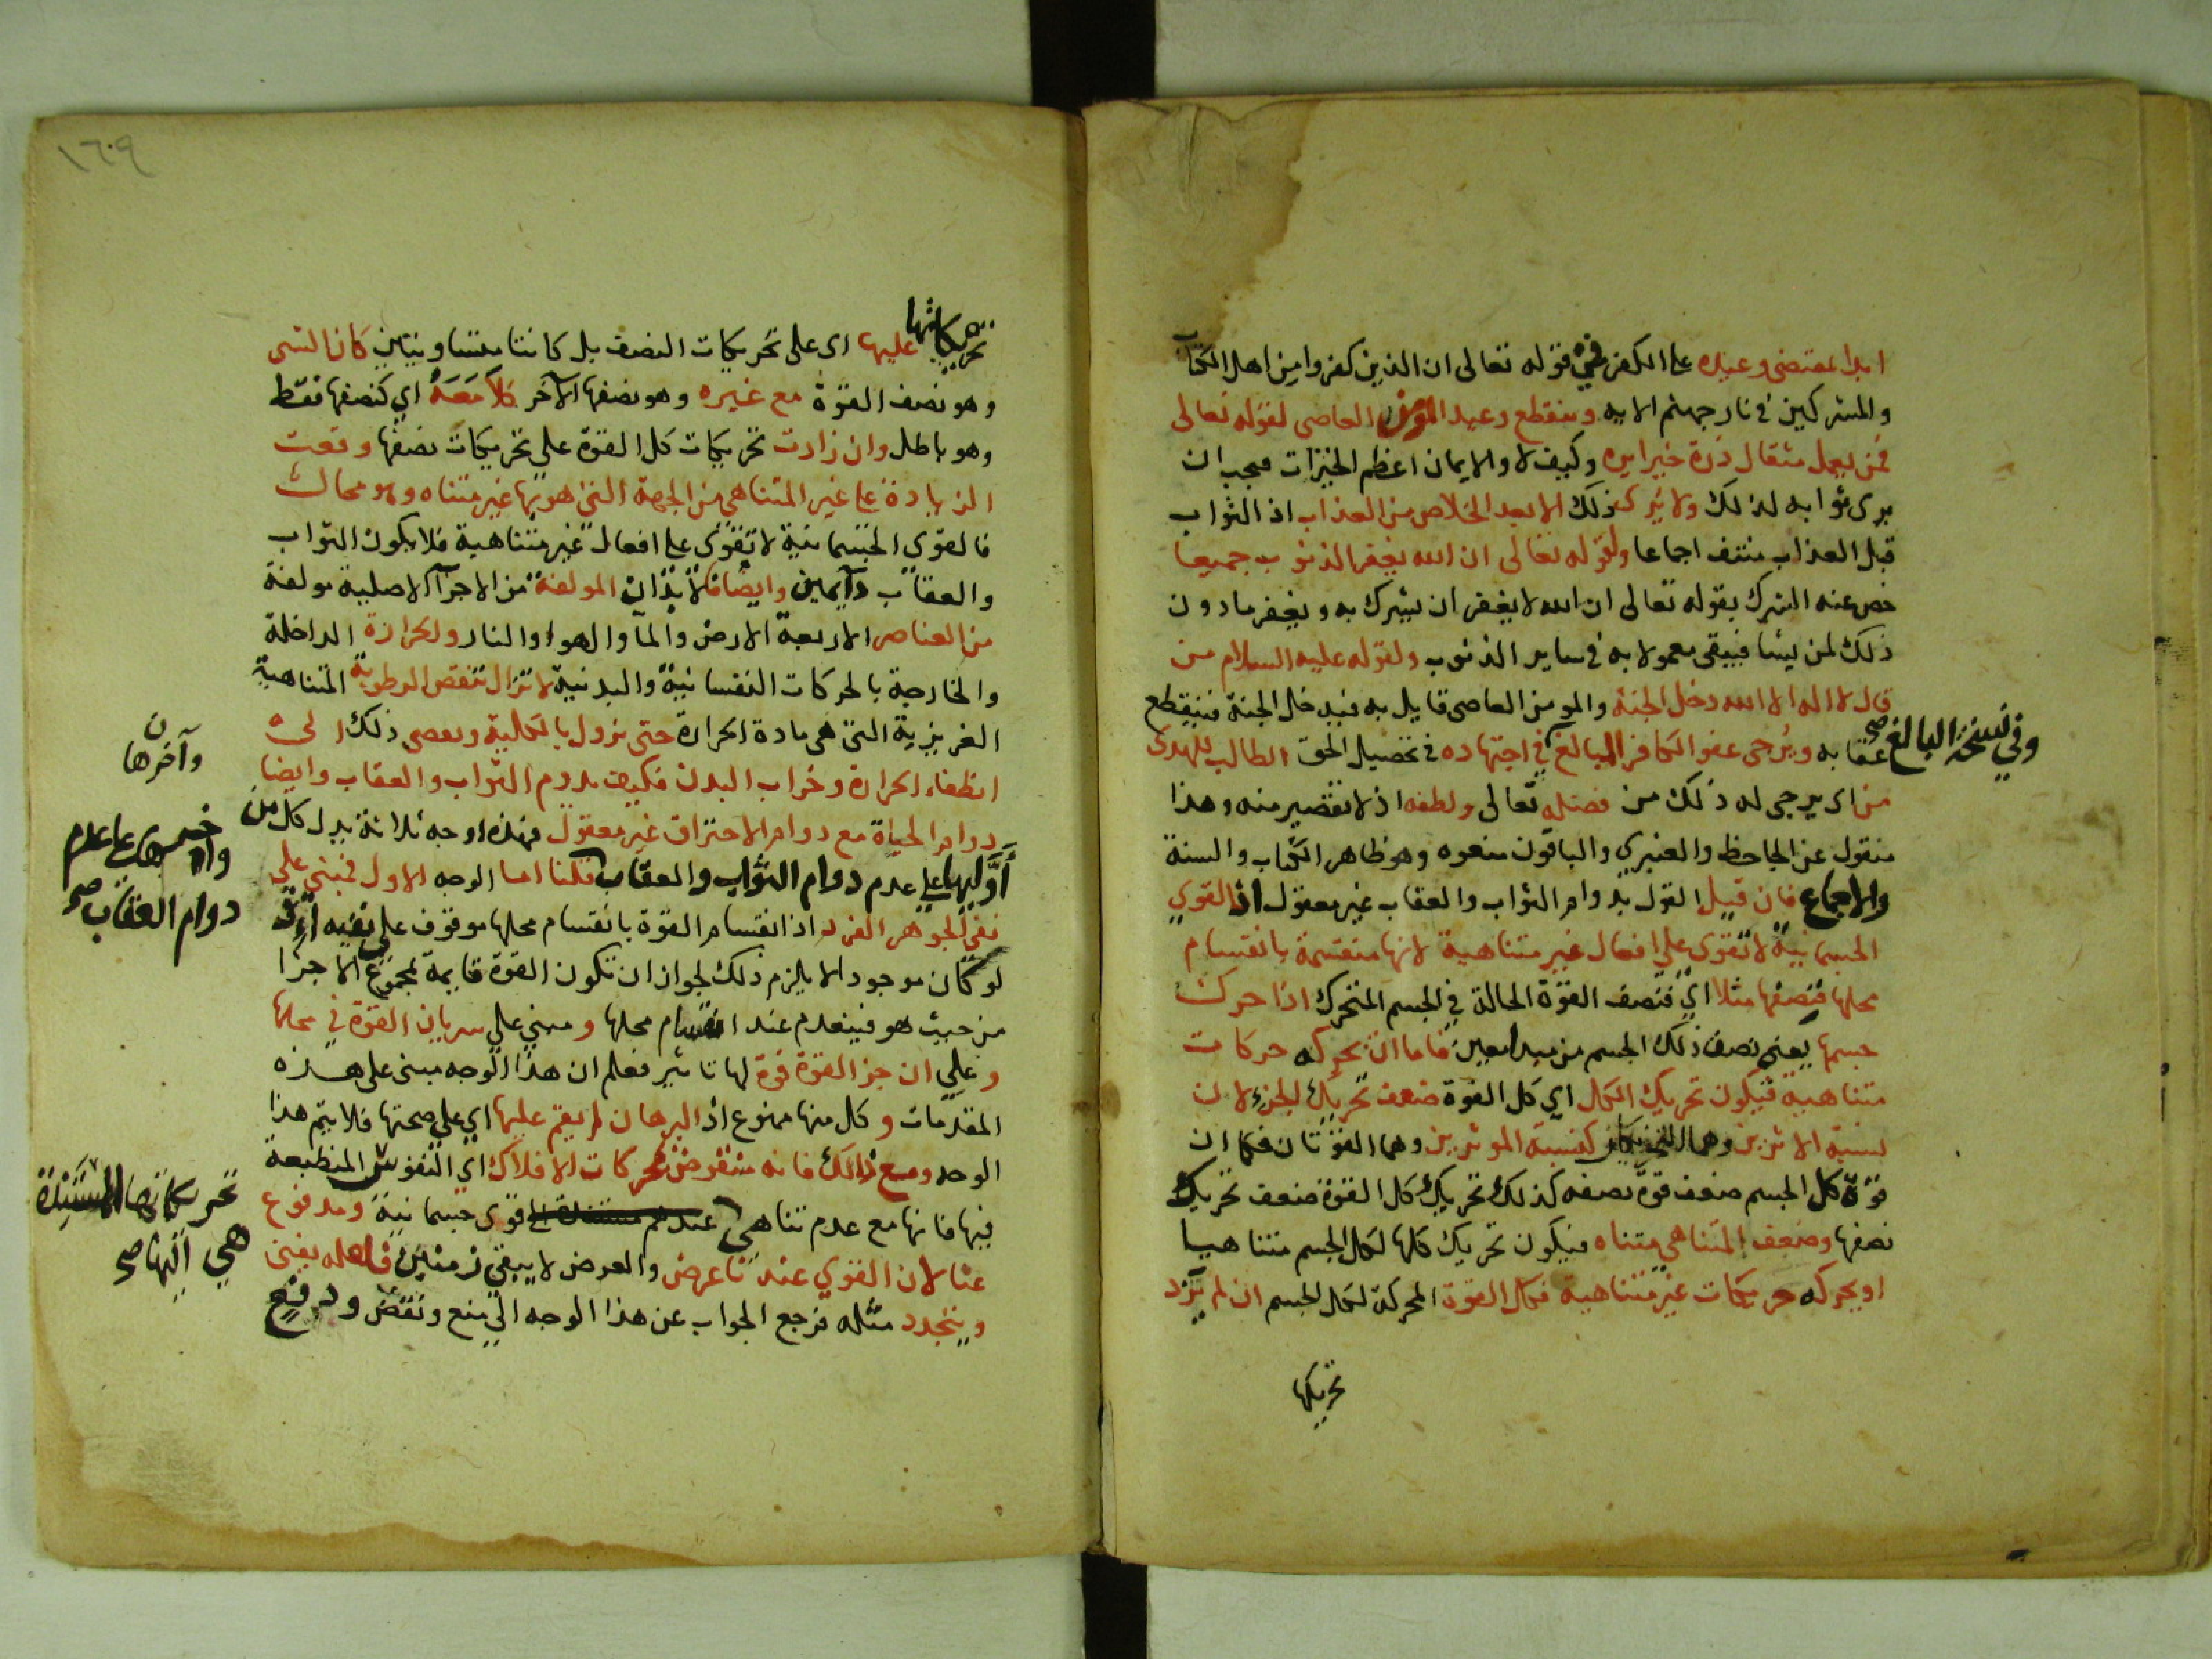 ابدا بمقتضى وعيده على الكفر في قوله تعالى ان الذين كفروا من اهل الكتاب
والمشركين في نار جهنم الايه وينقطع وعيد المؤمن العاصي لقوله تعالى
فمن يعمل مثقال ذرة خيرا يره وكيف لا والايمان اعظم الخيرات فيجب ان
يرى ثوابه لذلك ولا يرى ذلك الا بعد الخلاص من العذاب اذ الثواب
قبل العذاب منتف اجماعا ولقوله تعالى ان الله يغفر الذنوب جميعا
خص عنه الشرك بقوله تعالى ان الله لا يغفر ان يشرك به ويغفر ما دون
ذلك لمن يشا فيبقى معمولا به في ساير الذنوب ولقوله عليه السلام من
قال لا اله الا الله دخل الجنة والمومن العاصي قايل به فيدخل الجنة فينقطع
عقابه ويرجى عفو الكافر المبالغ في اجتهاده في تحصيل الحق الطالب للهدى
وفي نسخة البالغ صح
من اى يرجى له ذلك من فضله تعالى ولطفه اذ لا تقصير منه وهذا
منقول عن الجاحظ والعنبري والباقون منعوه وهو ظاهر الكتاب والسنة
والاجماع فان قيل القول بدوام الثواب والعقاب غير معقول اذ القوي
الجسمانية لا تقوى على افعال غير متناهية لانها منقسمة بانقسام
محلها فنصفها مثلا اي فنصف القوة الحالة في الجسم المتحرك اذا حرك
جسمها يعني نصف ذلك الجسم من مبدا معين فاما ان يحركه حركات
متناهية فيكون تحريك الكل اي كل القوة ضعف تحريك الجزء لان
نسبة الاثرين وهما التحريكان كنسبة الموثرين وهما القوتان فكما ان
قوة كل الجسم ضعف قوة نصفه كذلك تحريك كل القوة ضعف تحريك
نصفها وضعف المتناهي متناه فيكون تحريك كلها لكل الجسم متناهيا
او يحركه حريكات غير متناهية فكل القوة المحركة لكل الجسم ان لم تزد
تحريكها
١٦٠٩
تحريكاتها عليها اى على تحريكات النصف بل كانتا متساويتين كان الشى
وهو نصف القوة مع غيره وهو نصفها الآخر كلا مَعَهُ اي كنصفها فقط
وهو باطل وان زادت تحريكات كل القوة على تحريكات نصفها وقعت
الزيادة على غير المتناهي من الجهة التى هو بها غير متناه وهو محال
فالقوى الجسمانية لا تقوى على افعال غير متناهية فلا يكون الثواب
والعقاب دآيمين وايضا فالابدان المولفة من الاجزآ الاصلية مولفة
من العناصر الاربعة الارض والمآ والهوا والنار والحرارة الداخلة
والخارجة بالحركات النفسانية والبدنية لا تزال تنقص الرطوبة المتناهية
الغريزية التى هي مادة الحرارة حتى تزول بالكلية ويفضي ذلك الى
انطفاء الحرارة وخراب البدن فكيف يدوم الثواب والعقاب وايضا
دوام الحياة مع دوام الاحتراق غير معقول فهذه اوجه ثلاثة يدل كل من
أَوَّليها على عدم دوام الثواب والعقاب قلنا اما الوجه الاول فمبني على
وآخرها
على عدم
دوام العقاب صح
نفي الجوهر الفرد اذ انقسام القوة بانقسام محلها موقوف على نفيه
لو كان موجودا لا يلزم ذلك لجواز ان تكون القوة قايمة لمجموع الاجزا
من حيث هو فينعدم عند انقسام محلها ومبني على سريان القوة في محلها
وعلى ان جز القوة قوة لها تاثير فعلم ان هذا الوجه مبنى على هذه
المقدمات وكل منها ممنوع اذ البرهان لم يقم عليها اي على صحتها فلا يتم هذا
الوجه ومع ذلك فانه منقوض بحركات الافلاك اي النفوس المنطبعة
فيها فانها مع عدم تناهي عندهم قوى جسمانية ومدفوع
تحريكاتها
هي اليها صح
عنا لان القوي عندنا عرض والعرض لا يبقى زمنين فلعله يفنى
ويتجدد مثله فرجع الجواب عن هذا الوجه الى منع ونقض ودفع